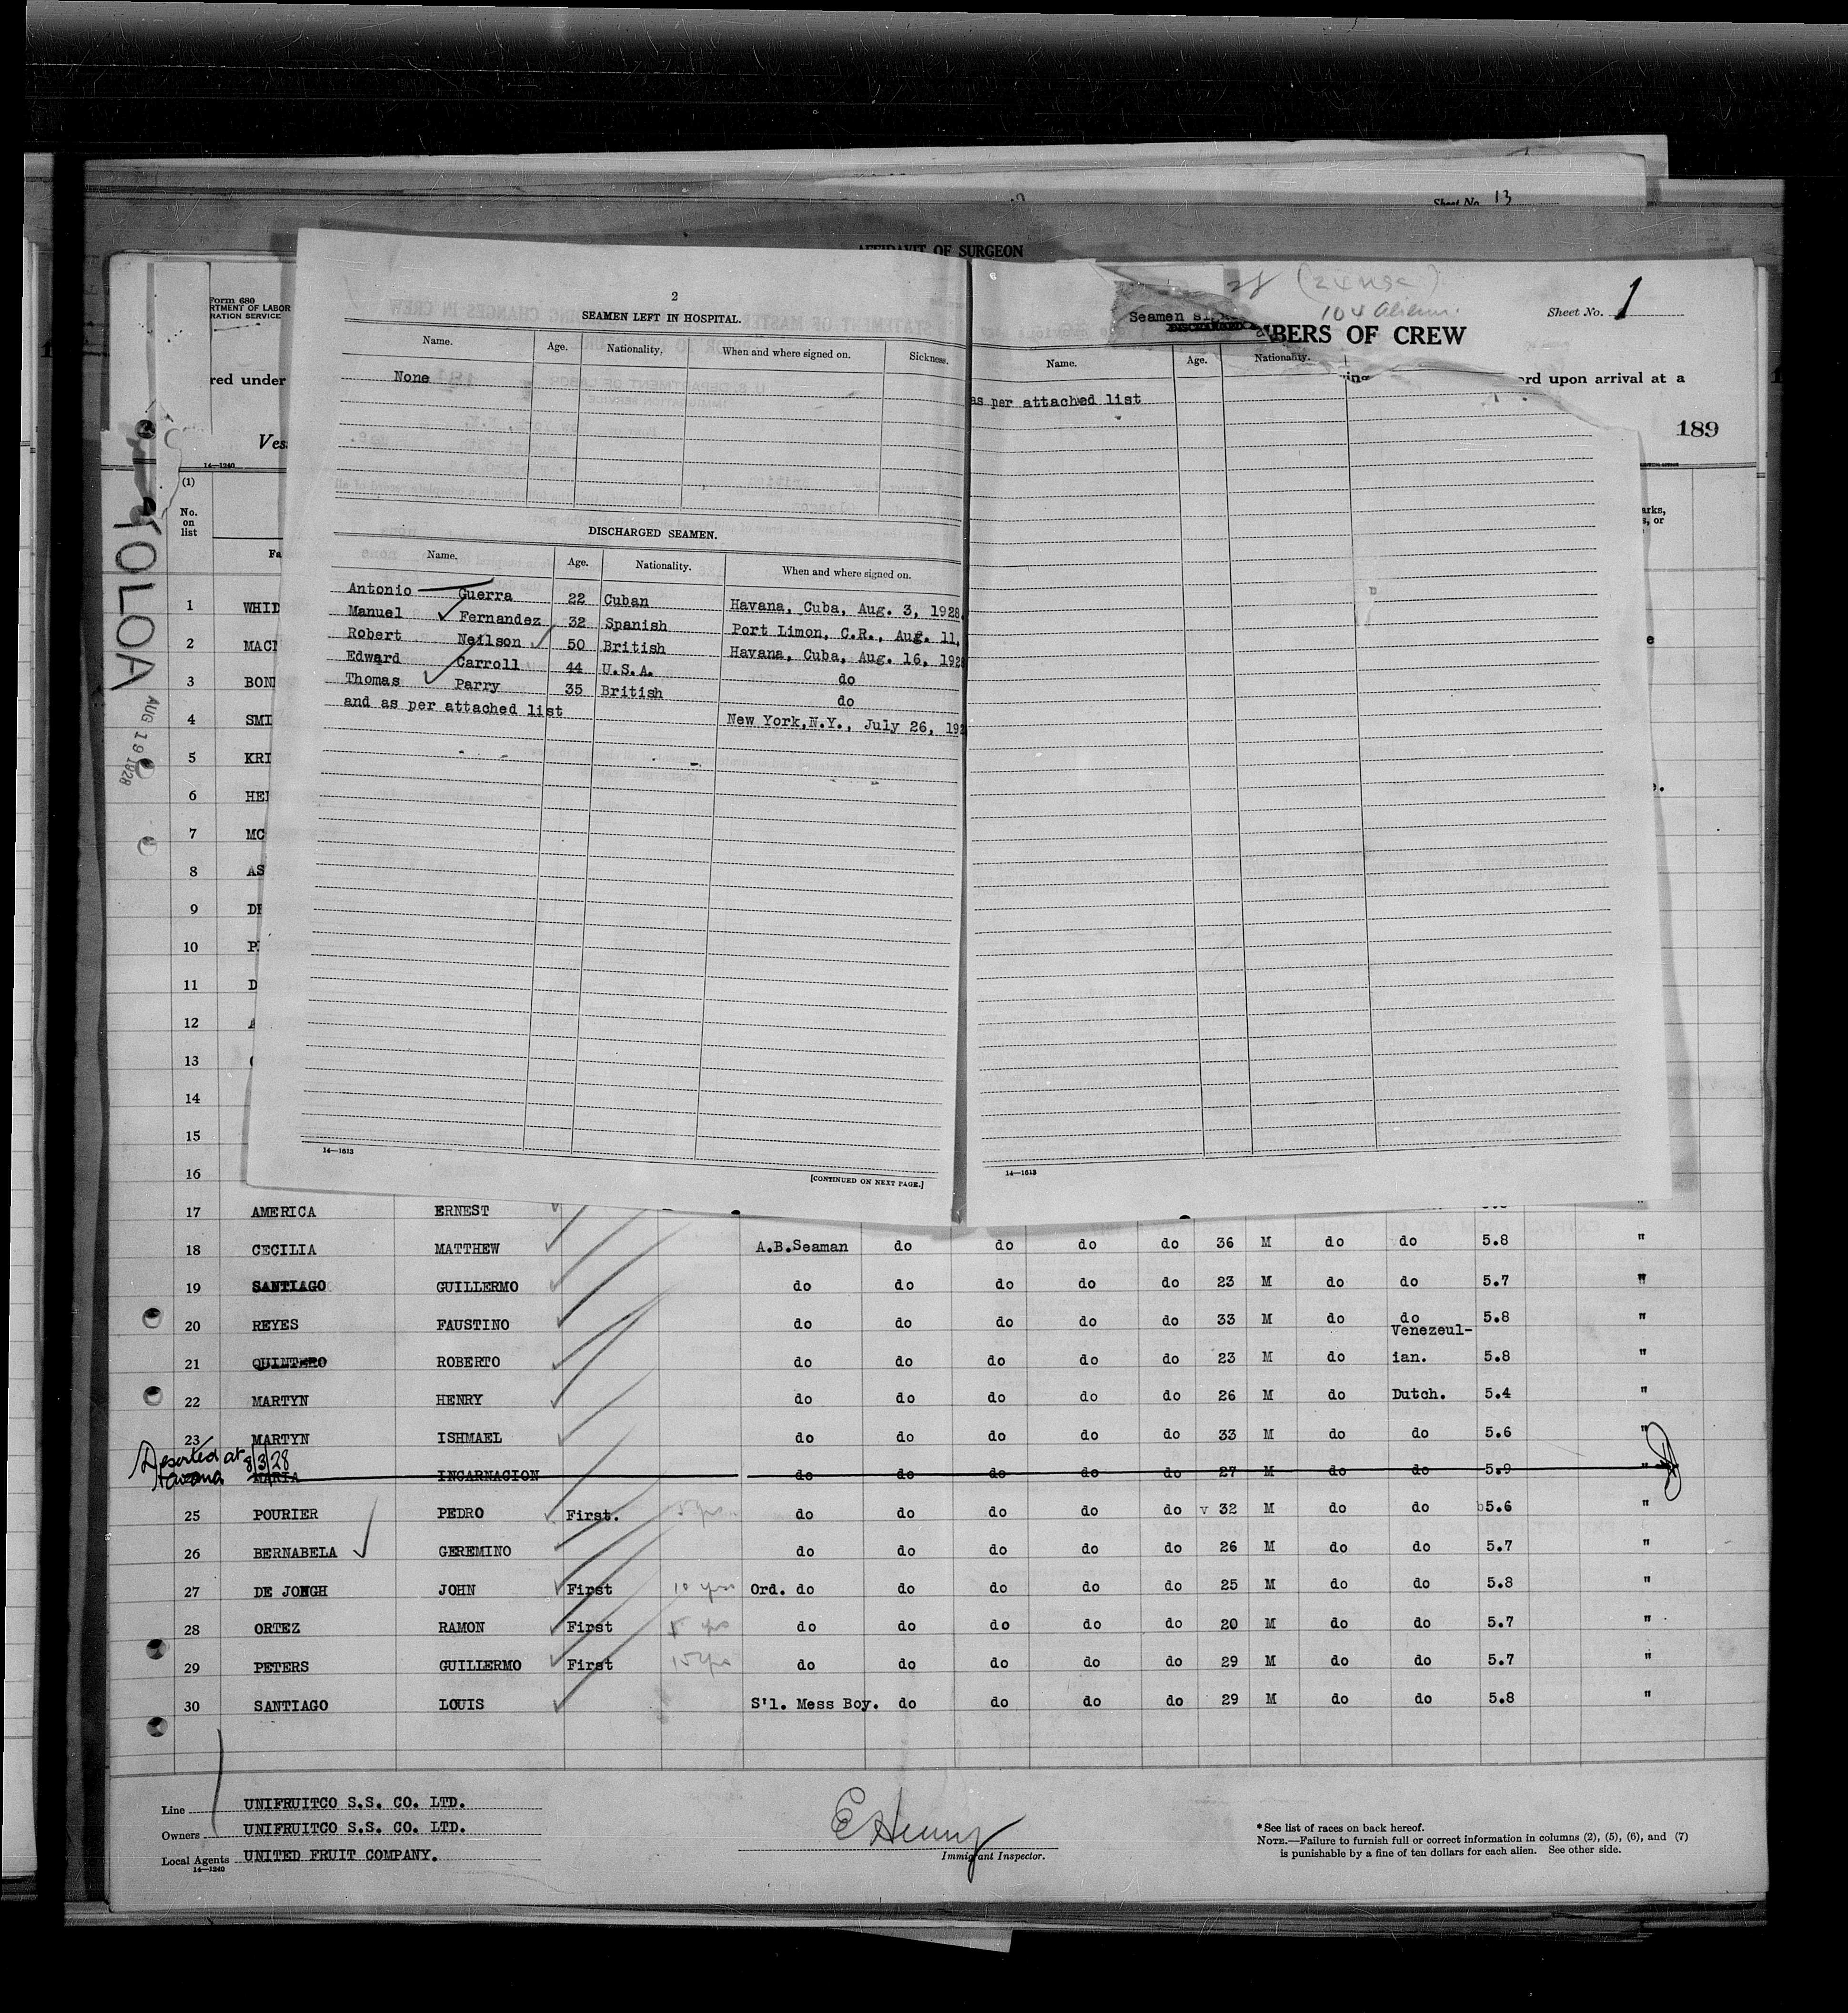 Sheet No. 13
AFFIDAVIT OF SURGEON
Form 680
RTMENT OF LABOR
RATION SERVICE
red under
Ves
14—1240
(1)
No.
on
list
Fa
TOLOA
AUG 19 1928
2
SEAMEN LEFT IN HOSPITAL.
Name. Age. Nationality. When and where signed on. Sickness.
None
DISCHARGED SEAMEN.
Name. Age. Nationality. When and where signed on.
Antonio Guerra 22 Cuban Havana, Cuba, Aug. 3, 1928.
Manuel Fernandez 32 Spanish Port Limon, C.R., Aug. 11,
Robert Neilson 50 British Havana, Cuba, Aug. 16, 192
Edward Carroll 44 U.S.A. do
Thomas Parry 35 British do
and as per attached list New York, N.Y., July 26, 192
14—1613
[CONTINUED ON NEXT PAGE.]
104 Aliens.
Sheet No. 1
Seamen
DISCHARGED
BERS OF CREW
Name. Age. Nationality.
ord upon arrival at a
as per attached list
189
arks,
s, or
14—1613
1 WHID
2 MACI
3 BON
4 SMI
5 KRI
6 HE
7 MC
8 AS
9 DE
10 P
11 D
12
13
14
15
16
17 AMERICA ERNEST
18 CECILIA MATTHEW A.B.Seaman do do do do 36 M do do 5.8 "
19 SANTIAGO GUILLERMO do do do do do 23 M do do 5.7 "
20 REYES FAUSTINO do do do do do 33 M do do 5.8 "
Venezeul-
21 QUINTERO ROBERTO do do do do do 23 M do ian. 5.8 "
22 MARTYN HENRY do do do do do 26 M do Dutch. 5.4 "
23 MARTYN ISHMAEL do do do do do 33 M do do 5.6 "
Deserted at 8/3/28
Havana MARIA INCARNACION do do do do do 27 M do do 5.9 "
25 POURIER PEDRO First. 5 yrs. do do do do do v 32 M do do b5.6 "
26 BERNABELA GEREMINO do do do do do 26 M do do 5.7 "
27 DE JONGH JOHN First 10 yrs Ord. do do do do do 25 M do do 5.8 "
28 ORTEZ RAMON First yrs do do do do do 20 M do do 5.7 "
29 PETERS GUILLERMO First 15 yrs do do do do do 29 M do do 5.7 "
30 SANTIAGO LOUIS S'l. Mess Boy. do do do do 29 M do do 5.8 "
Line UNIFRUITCO S.S. CO. LTD.
Owners UNIFRUITCO S.S. CO. LTD.
Local Agents UNITED FRUIT COMPANY.
14—1240
E Henny
Immigrant Inspector.
*See list of races on back hereof.
NOTE.—Failure to furnish full or correct information in columns (2), (5), (6), and (7)
is punishable by a fine of ten dollars for each alien. See other side.